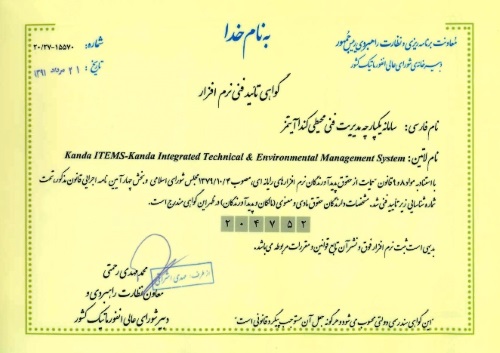 به نام خدا
معاونت برنامه ریزی و نظارت راهبردی رییس جمهور
دبیرخانه شورای عالی انفورماتیک کشور
شماره: ۲۰/۲۷-۱۵۵۷۰
تاریخ: ۲۱ مرداد ۱۳۹۱
گواهی تأئید فنی نرم افزار
نام فارسی: سامانه یکپارچه مدیریت فنی محیطی کندا آیتمز
نام لاتین: Kanda ITEMS-Kanda Integrated Technical & Environmental Management System
با استناد به مواد ۸ و ۹ قانون حمایت از حقوق پدیدآورندگان نرم افزارهای رایانه ای، مصوب ۱۳۷۹/۱۰/۴ مجلس شورای اسلامی و بخش چهار آیین نامه اجرایی قانون مذکور، تحت
شماره شناسایی زیر تأیید فنی شد. مشخصات دارندگان حقوق مادی و معنوی (مالکان و پدیدآورندگان) در ظهر این گواهی مندرج است.
۲۰۴۷۵۲
بدیهی است ثبت نرم افزار فوق و نشر آن تابع قوانین و مقررات مربوطه می باشد.
محمد مهدی رحمتی
معاون نظارت راهبردی و
دبیر شورای عالی انفورماتیک کشور
"این گواهی سند رسمی دولتی محسوب می شود و هرگونه جعل آن مستوجب پیگرد قانونی است."